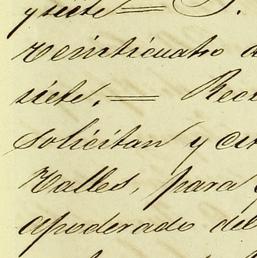 y siete = 
Veinticuatro d
siete. = Reci
solicitan y cer
Valles, para
apoderado del